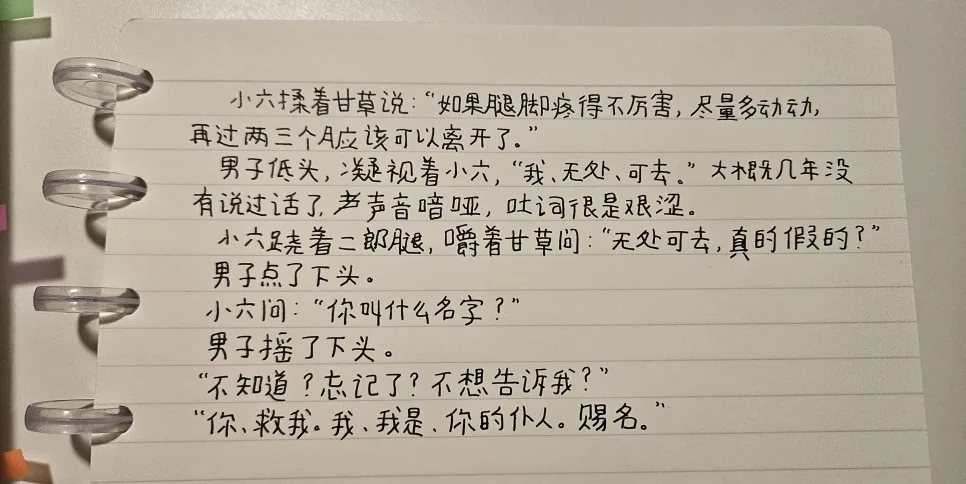 小六揉着甘草说：“如果腿脚疼得不厉害，尽量多动动，
再过两三个月应该可以离开了。”
男子低头，凝视着小六，“我、无处、可去。”大概几年没
有说过话了，声声音喑哑，吐词很是艰涩。
小六跷着二郎腿，嚼着甘草问：“无处可去，真的假的？”
男子点了下头。
小六问：“你叫什么名字？”
男子摇了下头。
“不知道？忘记了？不想告诉我？”
“你、救我。我、我是、你的仆人。赐名。”